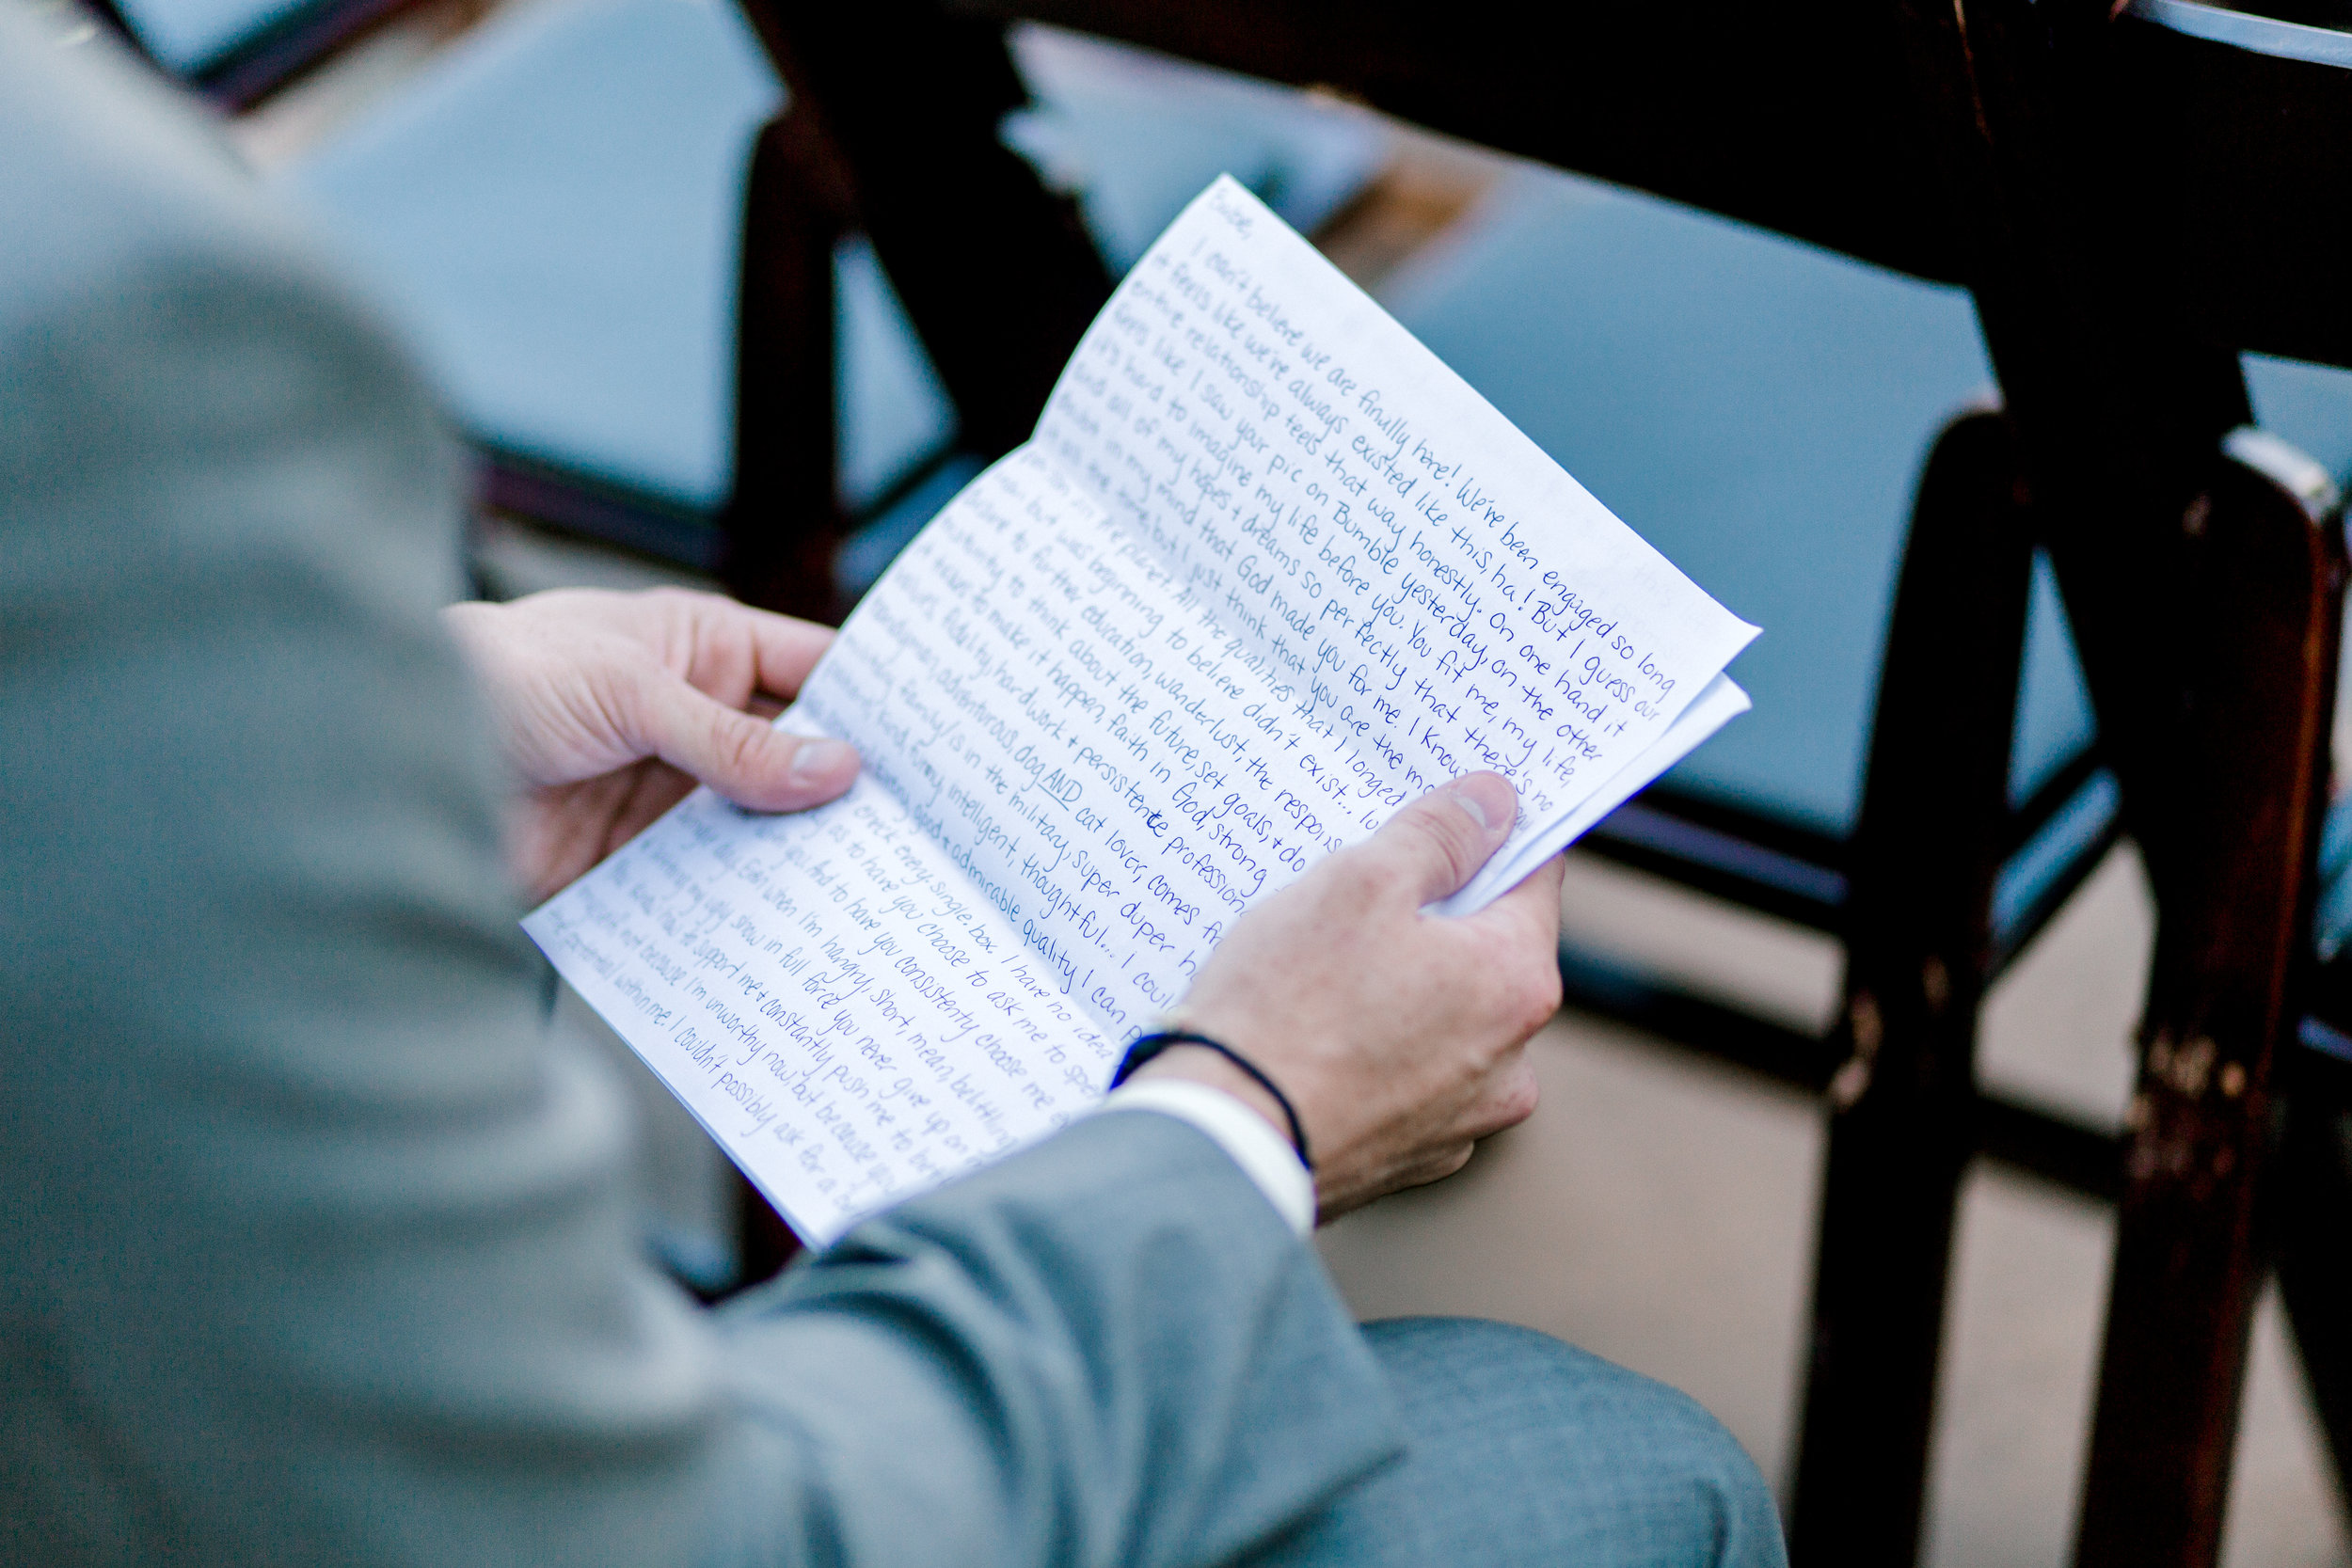 I can't believe we are finally here! We've been engaged so long
it feels like we've always existed like this, ha! But I guess our
entire relationship feels that way honestly. On one hand it
feels like I saw your pic on Bumble yesterday, on the other
it's hard to imagine my life before you. You fit me, my life,
and all of my hopes + dreams so perfectly that there's no
doubt in my mind that God made you for me. I know
it all the time, but I just think that you are the mo
planet. All the qualities that I longed
but was beginning to believe didn't exist...
to further education, wanderlust, the respons
to think about the future, set goals, + do
to make it happen, faith in God, strong
fidelity, hard work + persistence profession
adventurous, dog AND cat lover, comes fr
family/is in the military, super duper h
kind, funny, intelligent, thoughtful... I coul
good + admirable quality I can p
check every. single. box. I have no idea
as to have you choose to ask me to spe
you. And to have you consistently choose me e
when I'm hangry, short, mean, belittling
my ugly show in full force you never give up on
to support me + constantly push me to br
not because I'm unworthy now, but because you
the potential within me. I couldn't possibly ask for a be